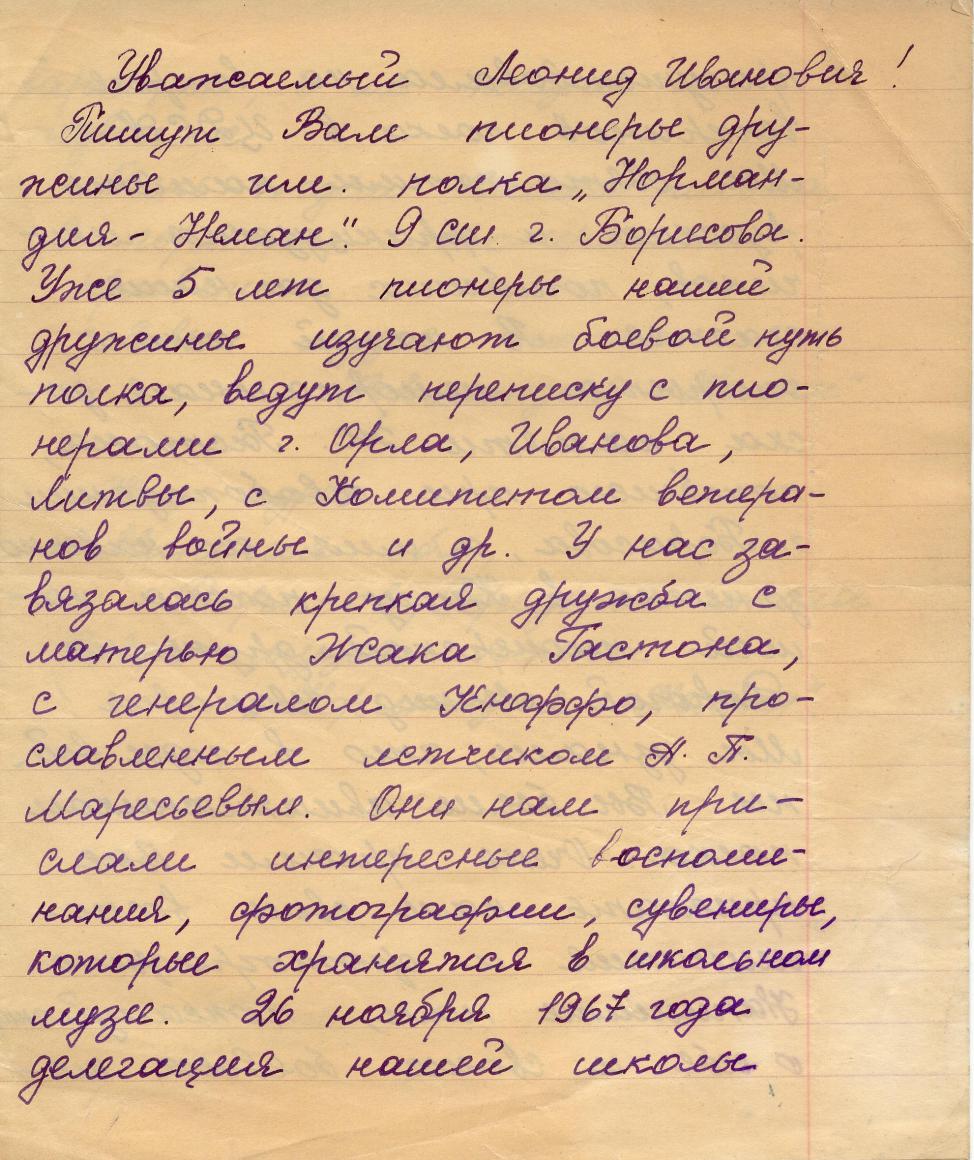 Уважаемый Леонид Иванович!
Пишут Вам пионеры дру-
жины им. полка „Норман-
дия - Неман". 9 сш. г. Борисова.
Уже 5 лет пионеры нашей
дружины изучают боевой путь
полка, ведут переписку с пио-
нерами г. Орла, Иванова,
Литвы, с Комитетом ветера-
нов войны и др. У нас за-
вязалась крепкая дружба с
матерью Жака Гастона,
с генералом Кюффо, про-
славленным летчиком А. П.
Маресьевым. Они нам при-
слали интересные воспоми-
нания, фотографии, сувениры,
которые хранятся в школьном
музее. 26 ноября 1967 года
делегация нашей школы